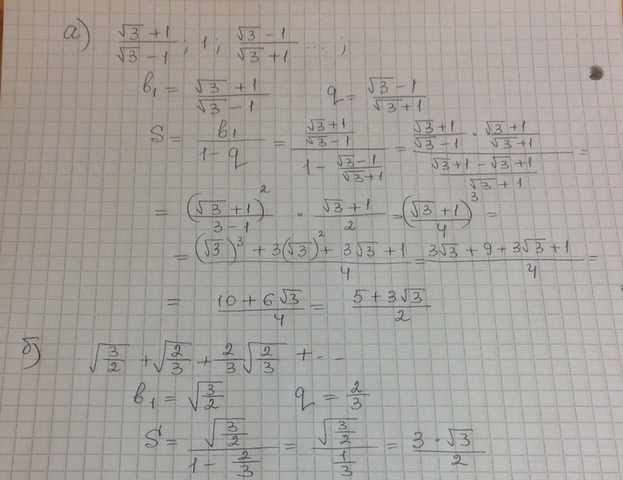 а) (√3 + 1)/(√3 − 1) ; 1 ; (√3 − 1)/(√3 + 1) ... ;
b₁ = (√3 + 1)/(√3 − 1) q = (√3 − 1)/(√3 + 1)
S = b₁/(1 − q) = ((√3+1)/(√3−1))/(1 − (√3−1)/(√3+1)) = ((√3+1)/(√3−1) · (√3+1)/(√3+1))/((√3+1 − √3+1)/(√3+1)) =
= (√3 + 1)²/(3 − 1) · (√3 + 1)/2 = (√3 + 1)³/4 =
= ((√3)³ + 3(√3)² + 3√3 + 1)/4 = (3√3 + 9 + 3√3 + 1)/4 =
= (10 + 6√3)/4 = (5 + 3√3)/2
б) √(3/2) + √(2/3) + 2/3 √(2/3) + ...
b₁ = √(3/2) q = 2/3
S = √(3/2)/(1 − 2/3) = √(3/2)/(1/3) = (3 · √3)/2